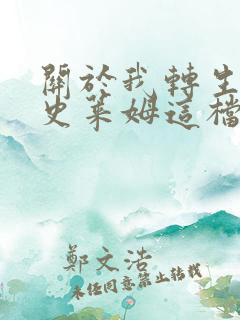 關於我轉生
史萊姆這檔
鄭文浩
未經同意禁止轉載